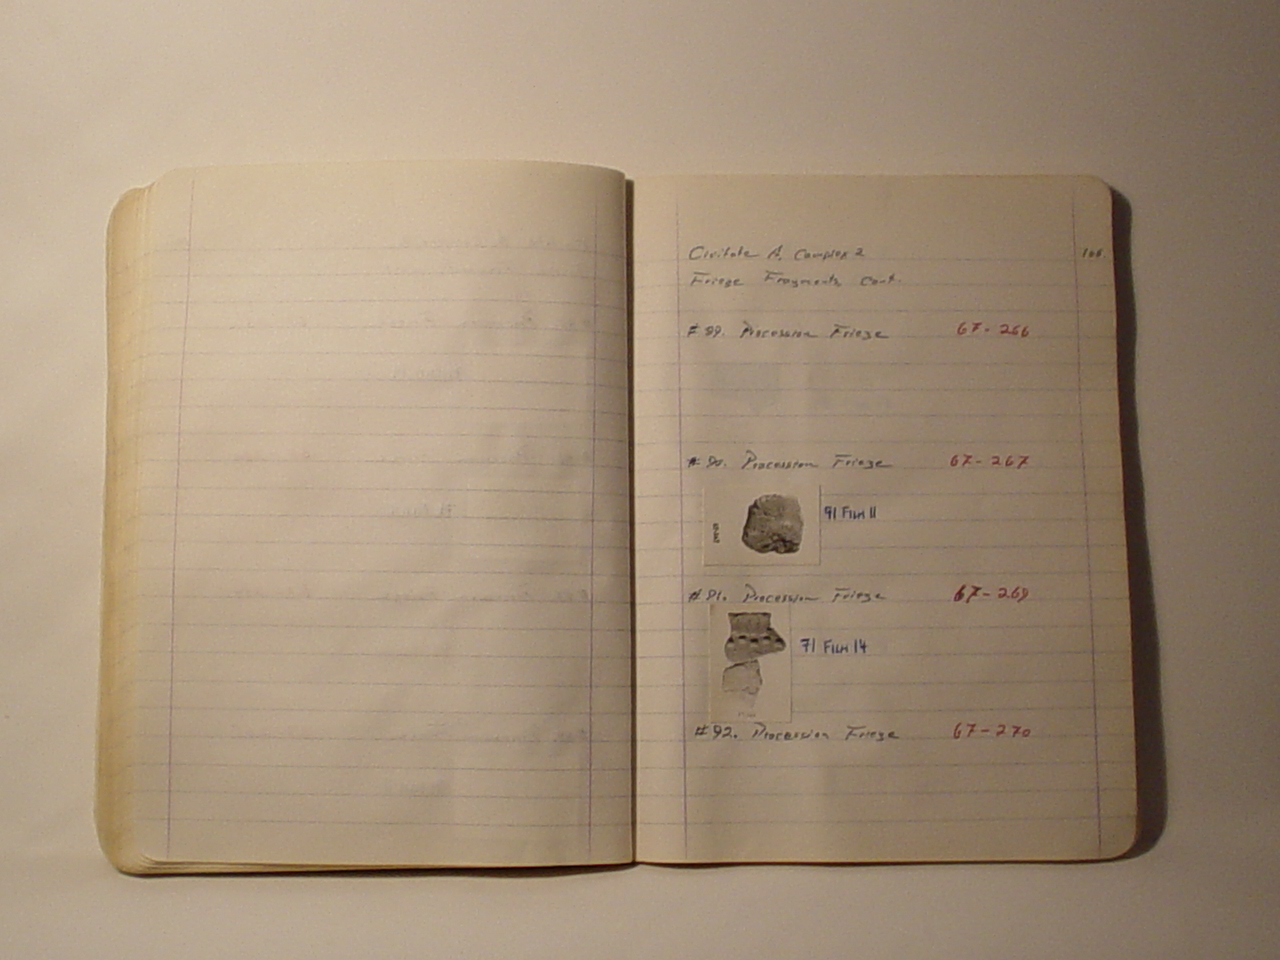 Civitate A. Complex 2
106
Frieze Fragments cont.
#89. Procession Frieze 67-266
#90. Procession Frieze 67-267
71 Film 11
#91. Procession Frieze 67-269
71 Film 14
#92. Procession Frieze 67-270